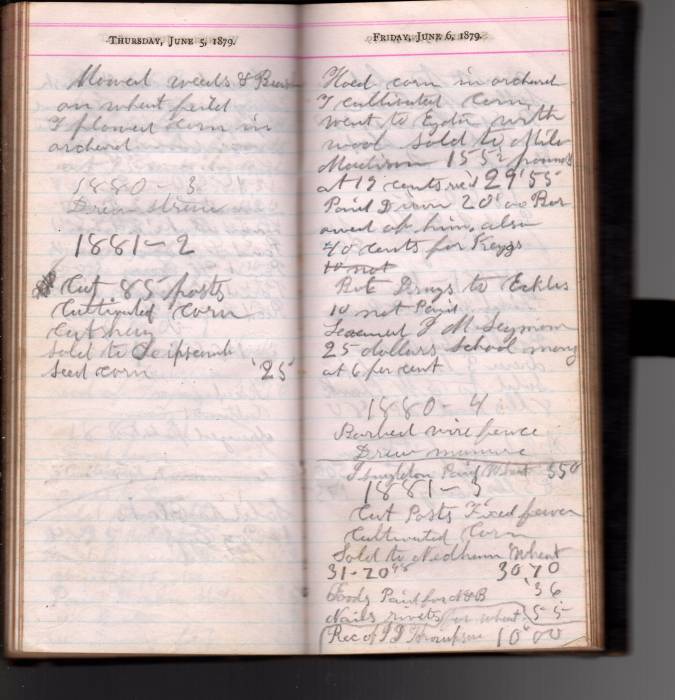 Thursday, June 5, 1879.
Mowed weeds &
on wheat feild
I plowed corn in
orcherd
1880-3
Drew
1881-2
Cut 85 posts
Cultivated Corn
Cut
Sold to
Seed corn '25
Friday, June 6, 1879.
Hoed corn in orcherd
I cultivated corn
went to Eaton with
wool sold to Milo
Madison 155½ pounds
at 19 cents rec'd 29'55
Paid 20'00
owed of him, also
40 cents for Keggs
10 not
Bot Drugs to Eckles
10 not Paid
Loaned J M Seymour
25 dollars School mony
at 6 per cent
1880-4
Barbed wire fence
Drew manure
Singleton Paid 350
1881-3
Cut Posts Fixed fence
Cultivated Corn
Sold to Nedham Wheat
31-20 30'70
Paid for N&B '36
Nails rivets for wheat '55
Rec of J D Thompson 10'00